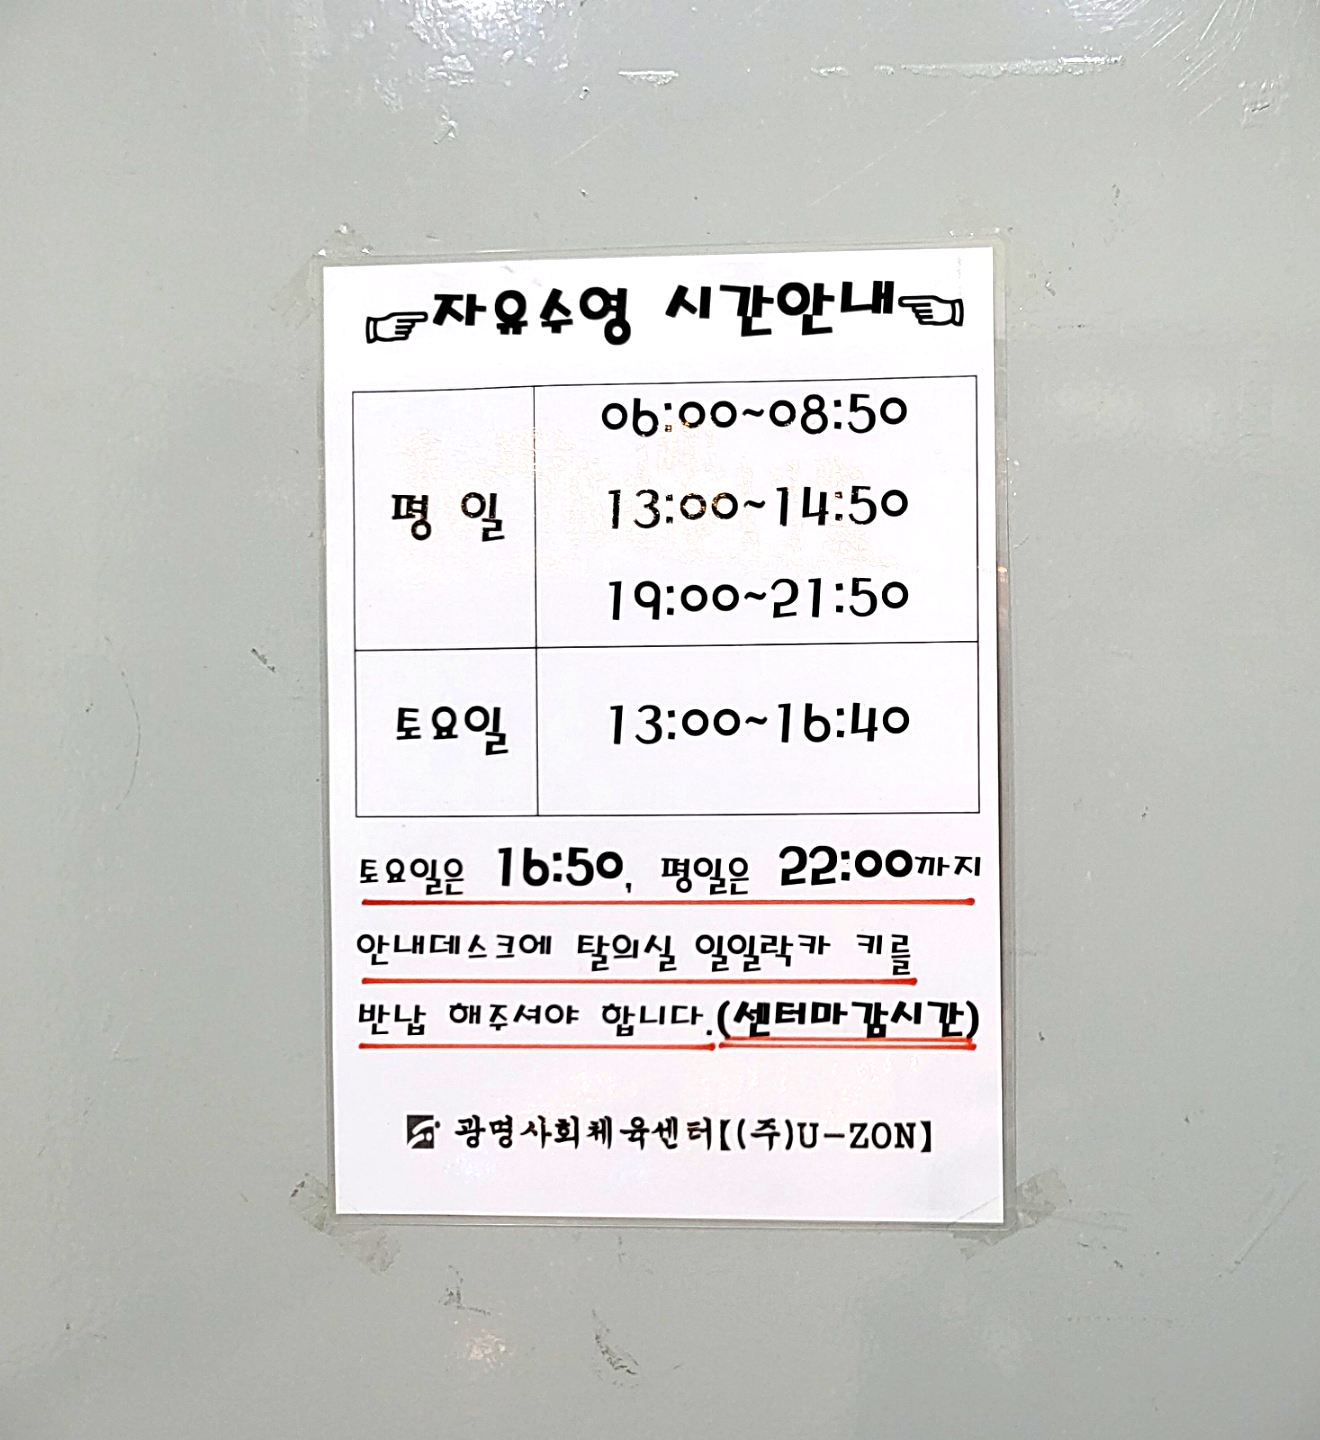 ☞자유수영 시간안내☜
06:00~08:50
평 일
13:00~14:50
19:00~21:50
토요일
13:00~16:40
토요일은 16:50, 평일은 22:00까지
안내데스크에 탈의실 일일락카 키를
반납 해주셔야 합니다.(센터마감시간)
광명사회체육센터【(주)U-ZON】